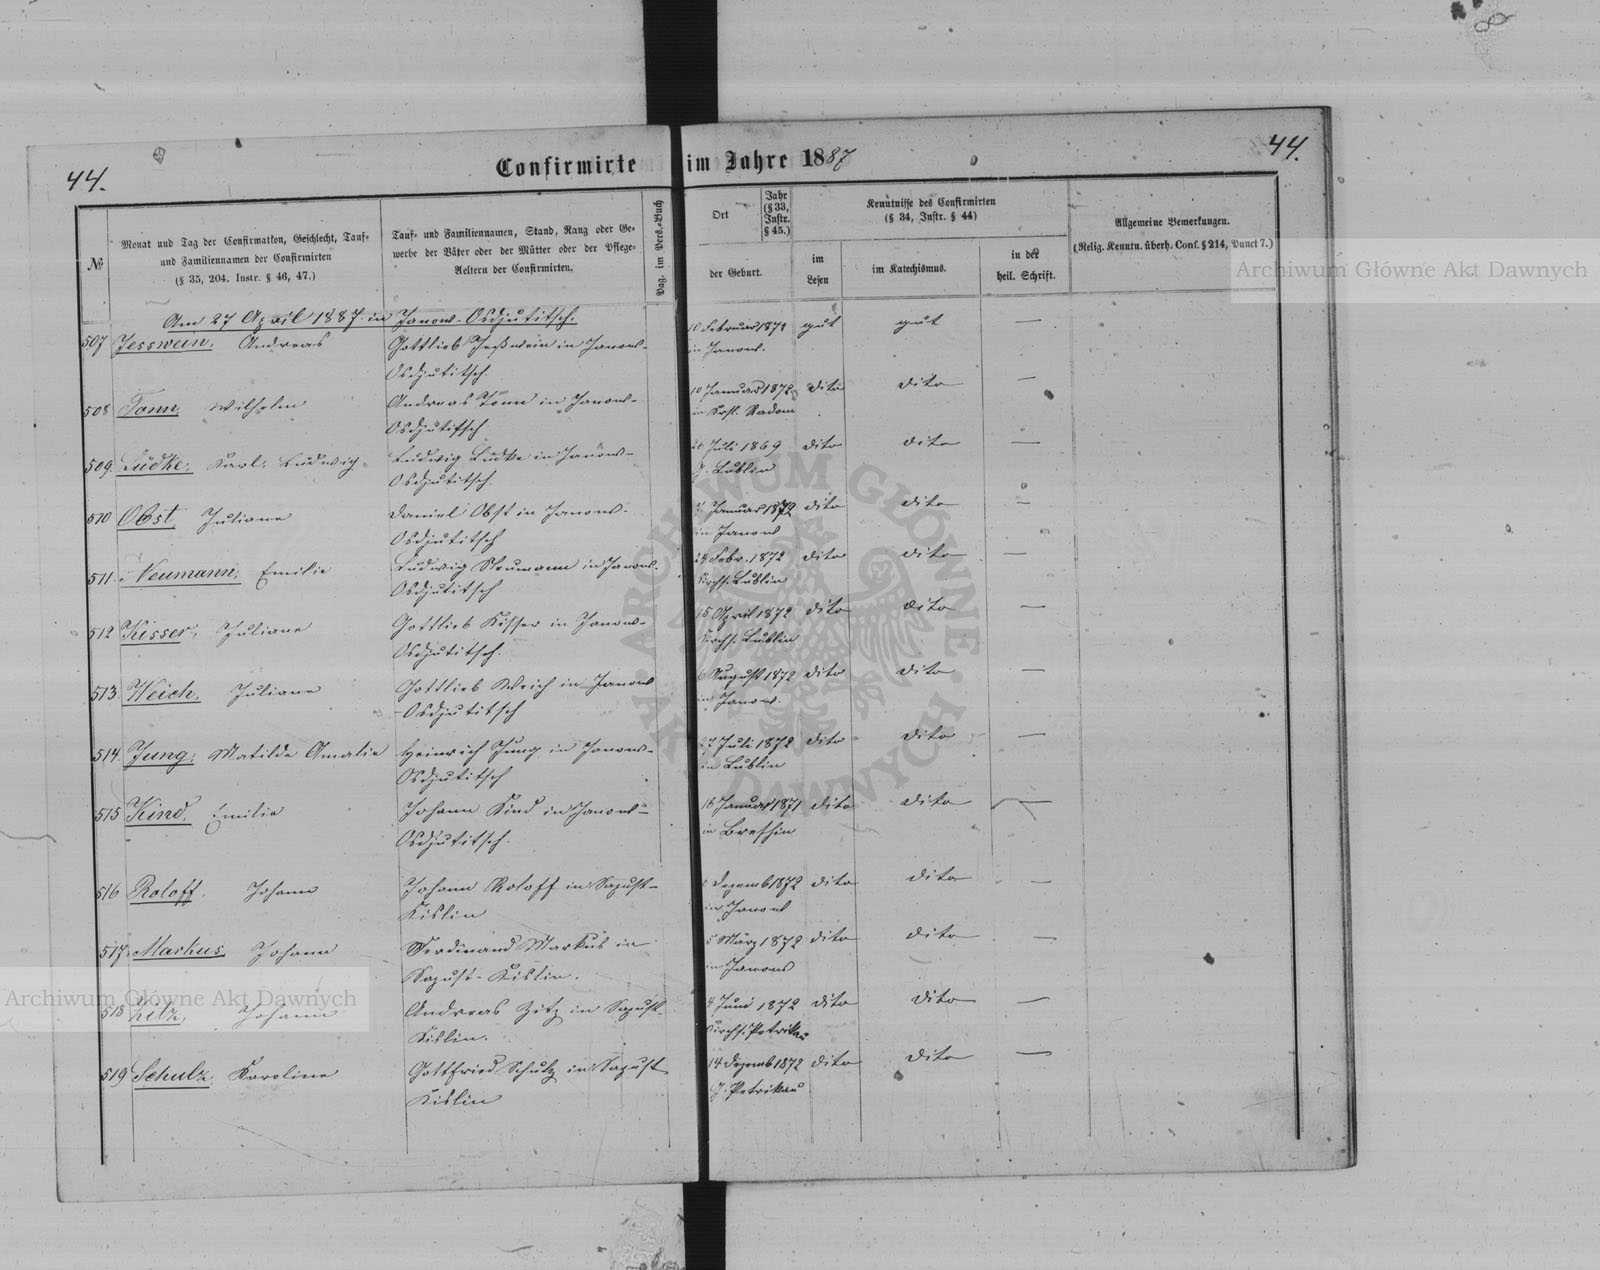 44.
Confirmirte im Jahre 1887
44.
№
Monat und Tag der Confirmation, Geschlecht, Tauf-
und Familiennamen der Confirmirten
(§ 35, 204. Instr. § 46, 47.)
Tauf- und Familiennamen, Stand, Rang oder Ge-
werbe der Väter oder der Mütter oder der Pflege-
Aeltern der Confirmirten.
Pag. im Pers.-Buch
Ort
Jahr
(§ 33,
Instr.
§ 45.)
der Geburt.
Kenntnisse des Confirmirten
(§ 34, Instr. § 44)
im
Lesen
im Katechismus.
in der
heil. Schrift.
Allgemeine Bemerkungen.
(Relig. Kenntn. überh. Conf. § 214, Punct 7.)
Am 27 April 1887 in Janow-Osdjutitsch.
507 Jesswein, Andreas Gottlieb Jeßwein in Janow- 10 Februar 1872 gut gut —
Osdjutitsch. in Janow.
508 Tonn, Wilhelm Andreas Tonn in Janow- 10 Januar 1872 dito dito —
Osdjutitsch in Radom
509. Lüdke, Karl, Ludwig Ludwig Lüdke in Janow- 26 Juli 1869 dito dito —
Osdjutitsch. G. Lublin
510 Obst Juliane Daniel Obst in Janow- Januar 1872 dito dito —
Osdjutitsch in Janow
511. Neumann, Emilie Ludwig Neumann in Janow- 24 Febr. 1872 dito dito —
Osdjutitsch Lublin
512 Kisser, Juliane Gottlieb Kisser in Janow- 15 April 1872 dito dito —
Osdjutitsch. Lublin
513. Weich, Juliane Gottlieb Weich in Janow 6 August 1872 dito dito —
-Osdjutitsch in Janow.
514. Jung, Matilde Amalie Heinrich Jung in Janow- 27 Juli 1872 dito dito —
Osdjutitsch in Lublin
515 Kind, Emilie Johann Kind in Janow- 16 Januar 1871 dito dito —
Osdjutitsch. in
516 Roloff. Johann Johann Roloff in Sapust- Dezemb 1872 dito dito —
Kislin in Janow
517. Markus, Johann Ferdinand Markus in 5 März 1872 dito dito —
Sapust-Kislin. in Janow
518 Zitz, Johann Andreas Zitz in Sapust- 4 Juni 1872 dito dito —
Kislin. Petrikau
519 Schulz, Karoline Gottfried Schulz in Sapust 14 Dezemb 1872 dito dito —
Kislin G. Petrikau
Archiwum Główne Akt Dawnych
Archiwum Główne Akt Dawnych
ARCHIWUM GŁÓWNE AKT DAWNYCH